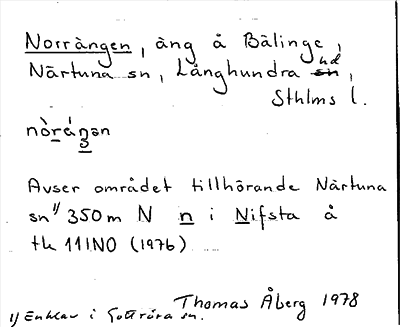 Norrängen, äng å Bälinge,
Närtuna sn, Långhundra hd,
Sthlms l.
nòrä́ŋən
3
Avser området tillhörande Närtuna
sn 1) 350 m N n i Nifsta å
tk 11I NO (1976)
Thomas Åberg 1978
1) Enklav i Gottröra sn.